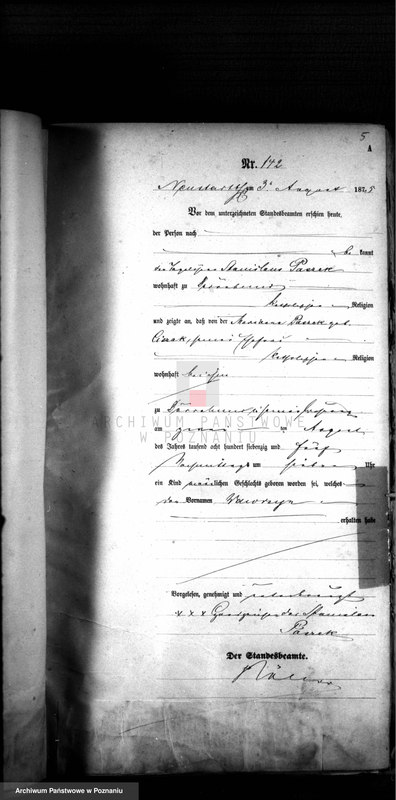 5
A
Nr. 142
Neustadt am 3. August 1875
Vor dem unterzeichneten Standesbeamten erschien heute,
der Person nach
bekannt
Stanislaus Paszek
wohnhaft zu
katholischer Religion
und zeigte an, daß von der Marianna Paszek geb.
seiner Ehefrau
katholischer Religion
wohnhaft bei ihm
zu in seiner Wohnung
am zwei ten August
des Jahres tausend acht hundert siebenzig und fünf
Nachmittags um sieben Uhr
ein Kind männlichen Geschlechts geboren worden sei, welches
den Vornamen Wawrzyn
erhalten habe
Vorgelesen, genehmigt und unterkreuzt
x x x Handzeichen des Stanislaus
Paszek
Der Standesbeamte.
ARCHIWUM PAŃSTWOWE
W POZNANIU
Archiwum Państwowe w Poznaniu